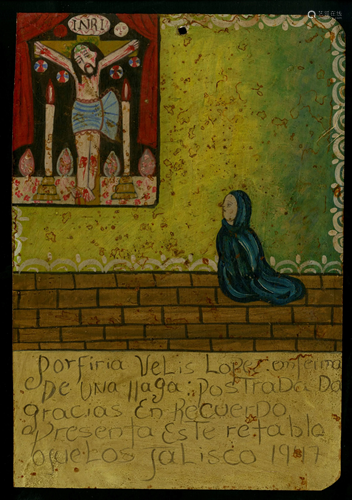 INRI
Porfiria Velis Lopes enferma
De una llaga: Postrada Da
gracias En Recuerdo
Presenta Este retablo
Jalisco 19